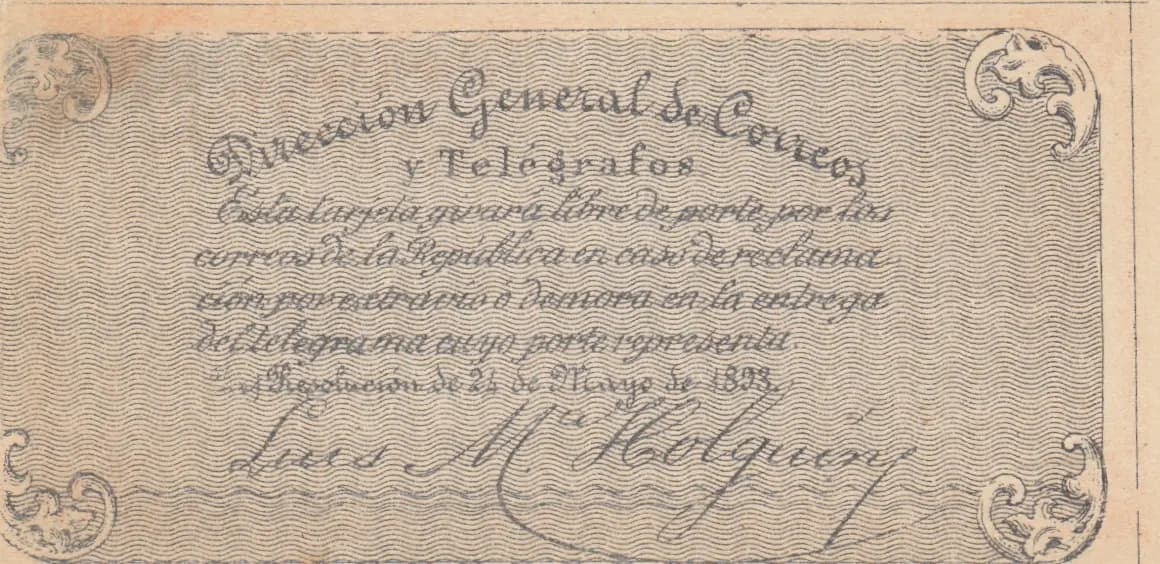 Dirección General de Correos
y Telégrafos
Esta tarjeta girará libre de porte por los
correos de la República en caso de reclama
ción por extravío ó demora en la entrega
del telegrama cuyo porte representa.
Resolución de 24 de Mayo de 1893.
Luis M.ª Holguín